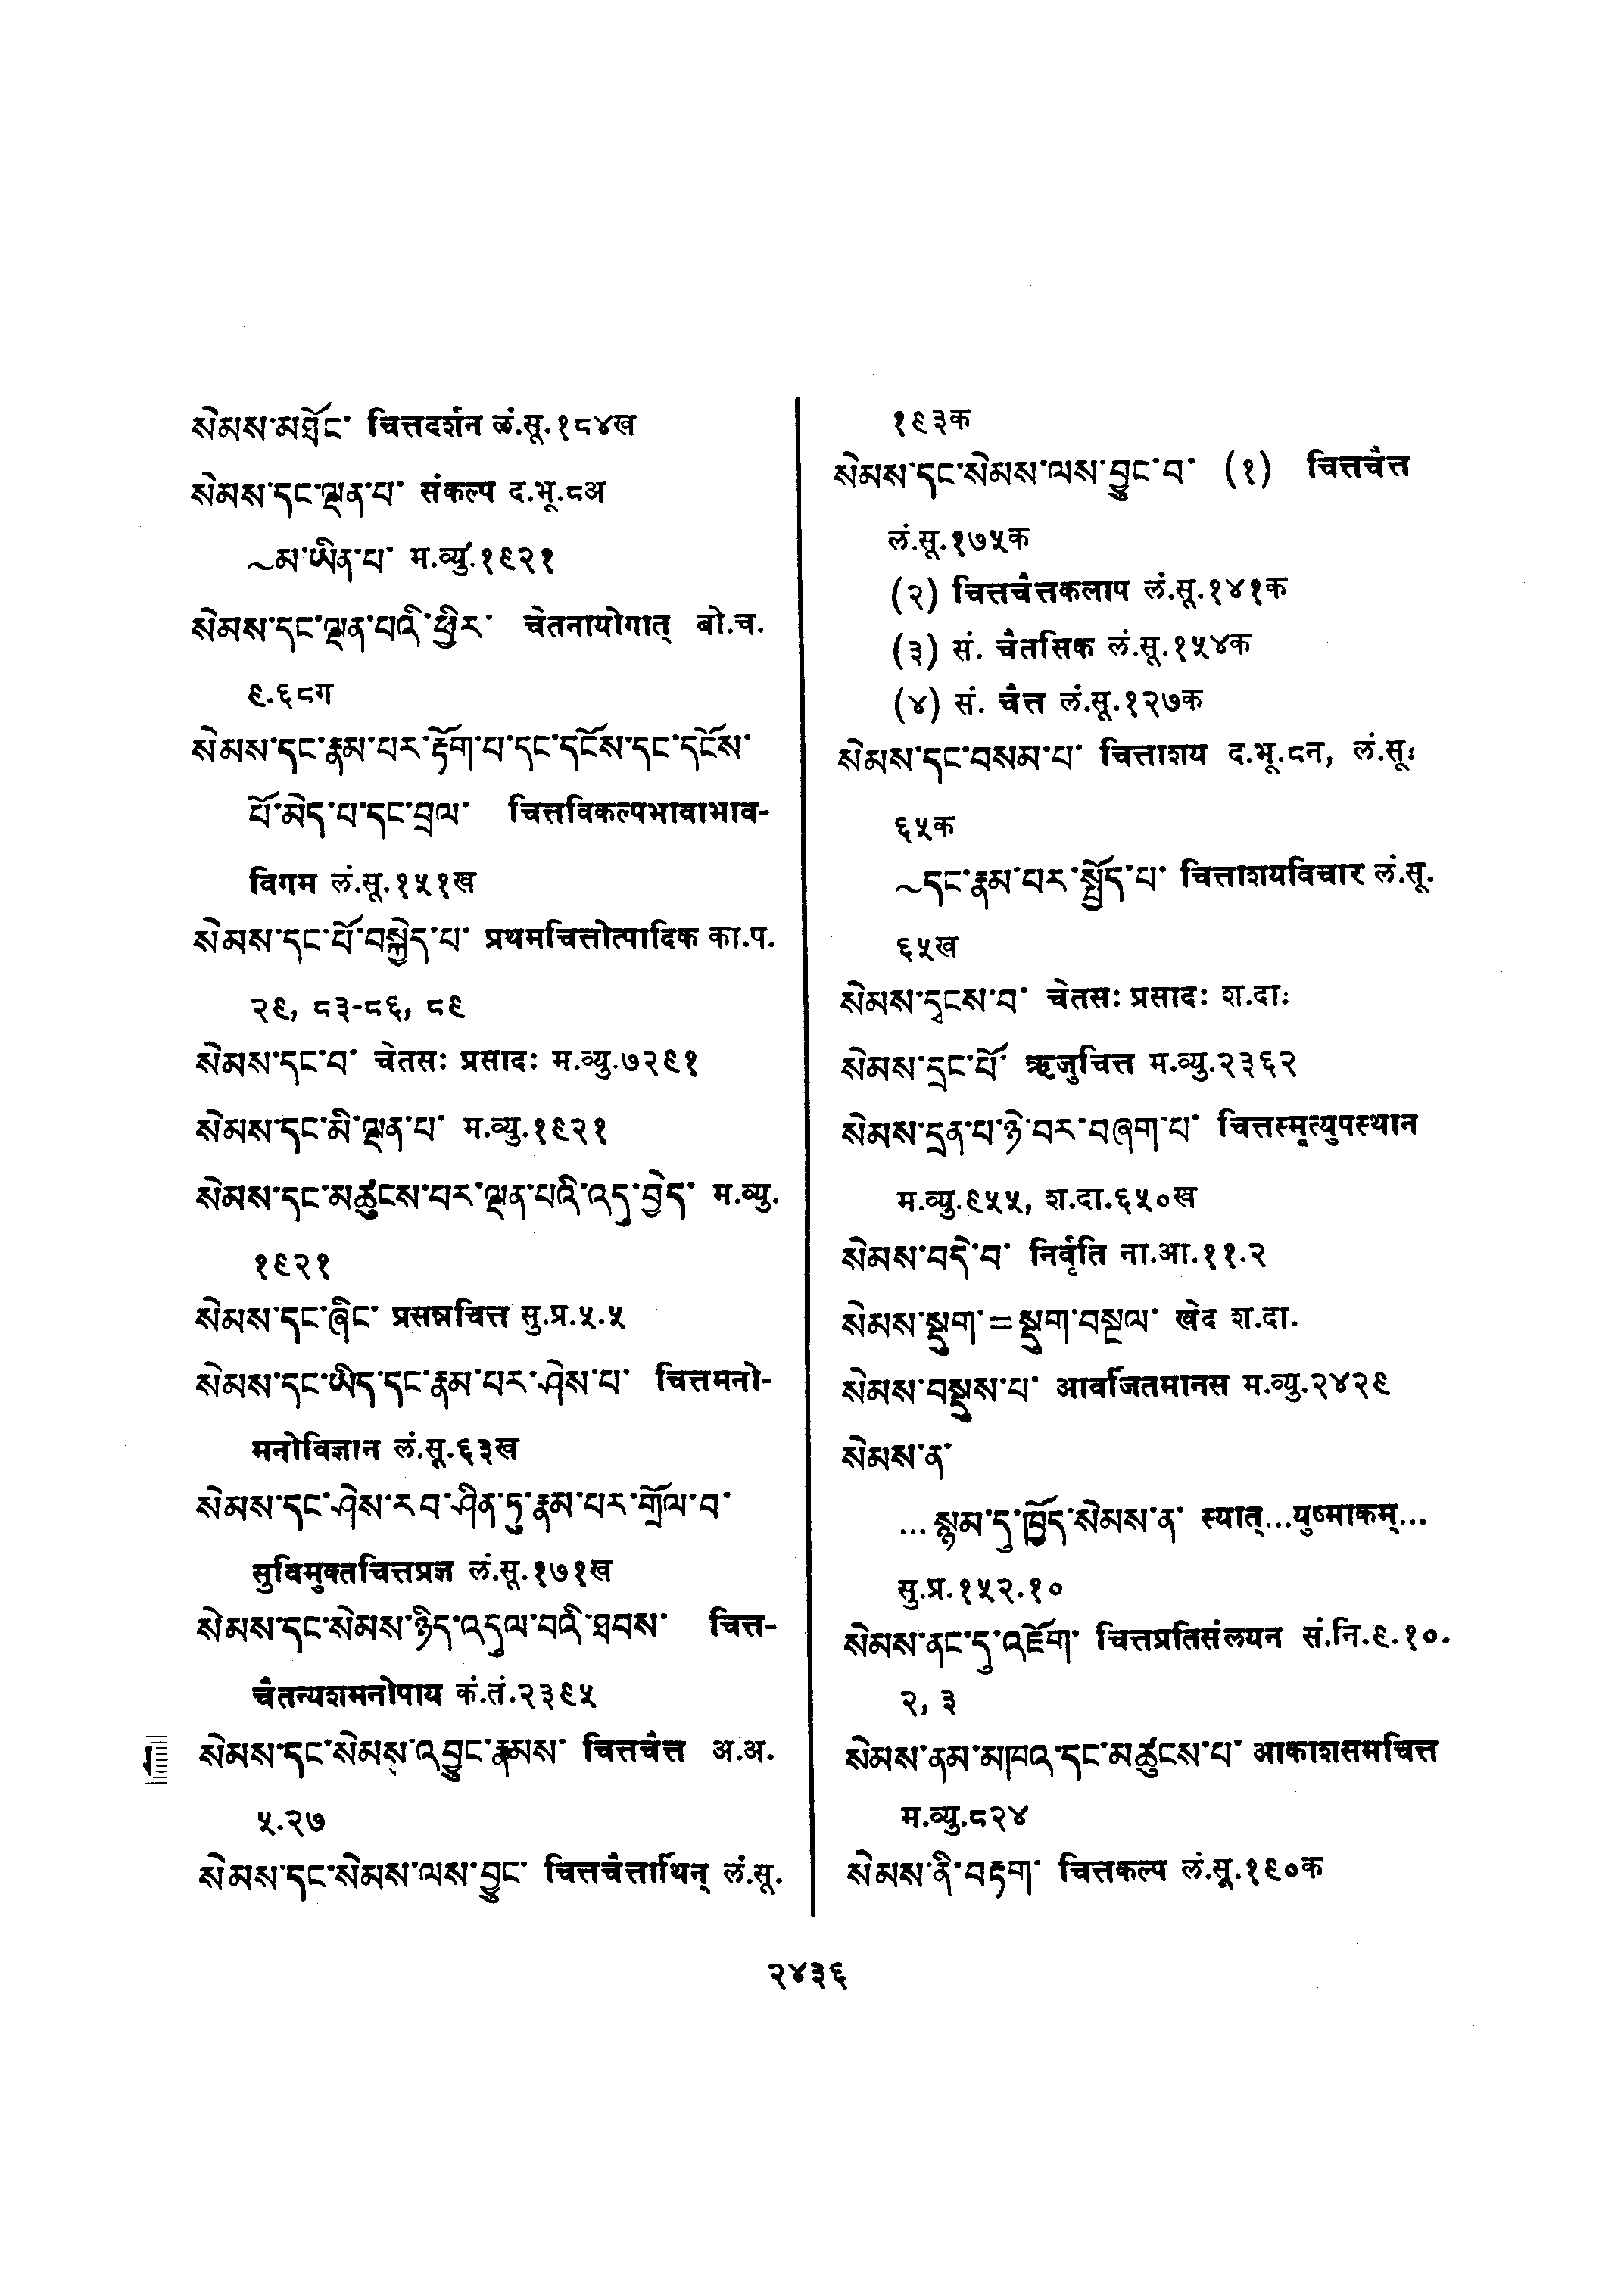 སེམས་མཐོང་ चित्तदर्शन ळं.सू.१८४ख
སེམས་དང་ལྡན་པ་ संकल्प द.भू.८अ
~མ་ཡིན་པ་ म.व्यु.१९२१
སེམས་དང་ལྡན་པའི་ཕྱིར་ चेतनायोगात् बो.च.
९.६८ग
སེམས་དང་རྣམ་པར་རྟོག་པ་དང་དངོས་དང་དངོས་
པོ་མེད་པ་དང་བྲལ་ चित्तविकल्पभावाभाव-
विगम लं.सू.१५१ख
སེམས་དང་པོ་བསྐྱེད་པ་ प्रथमचित्तोत्पादिक का.प.
२९, ८३-८६, ८९
སེམས་དང་བ་ चेतसः प्रसादः म.व्यु.७२९१
སེམས་དང་མི་ལྡན་པ་ म.व्यु.१९२१
སེམས་དང་མཚུངས་པར་ལྡན་པའི་འདུ་བྱེད་ म.व्यु.
१९२१
སེམས་དང་ཞིང་ प्रसन्नचित्त सु.प्र.५.५
སེམས་དང་ཡིད་དང་རྣམ་པར་ཤེས་པ་ चित्तमनो-
मनोविज्ञान लं.सू.६३ख
སེམས་དང་ཤེས་རབ་ཤིན་ཏུ་རྣམ་པར་གྲོལ་བ་
सुविमुक्तचित्तप्रज्ञ लं.सू.१७१ख
སེམས་དང་སེམས་ཉིད་འདུལ་བའི་ཐབས་ चित्त-
चैतन्यशमनोपाय कं.तं.२३९५
སེམས་དང་སེམས་འབྱུང་རྣམས་ चित्तचैत्त अ.अ.
५.२७
སེམས་དང་སེམས་ལས་བྱུང་ चित्तचैत्तार्थिन् लं.सू.
१९३क
སེམས་དང་སེམས་ལས་བྱུང་བ་ (१) चित्तचैत्त
लं.सू.१७५क
(२) चित्तचैत्तकलाप लं.सू.१४१क
(३) सं. चैतसिक लं.सू.१५४क
(४) सं. चैत्त लं.सू.१२७क
སེམས་དང་བསམ་པ་ चित्ताशय द.भू.८न, लं.सू.
६५क
~དང་རྣམ་པར་སྤྱོད་པ་ चित्ताशयविचार लं.सू.
६५ख
སེམས་དྭངས་བ་ चेतसः प्रसादः श.दा.
སེམས་དྲང་པོ་ ऋजुचित्त म.व्यु.२३६२
སེམས་དྲན་པ་ཉེ་བར་བཞག་པ་ चित्तस्मृत्युपस्थान
म.व्यु.९५५, श.दा.६५०ख
སེམས་བདེ་བ་ निर्वृति ना.आ.११.२
སེམས་སྡུག་=སྡུག་བསྔལ་ खेद श.दा.
སེམས་བསྡུས་པ་ आवर्जितमानस म.व्यु.२४२९
སེམས་ན་
...སྙམ་དུ་ཁྱོད་སེམས་ན་ स्यात्...युष्माकम्...
सु.प्र.१५२.१०
སེམས་ནང་དུ་འཇོག་ चित्तप्रतिसंलयन सं.नि.९.१०.
२, ३
སེམས་ནམ་མཁའ་དང་མཚུངས་པ་ आकाशसमचित्त
म.व्यु.८२४
སེམས་ནི་བརྟག་ चित्तकल्प लं.सू.१९०क
२४३६